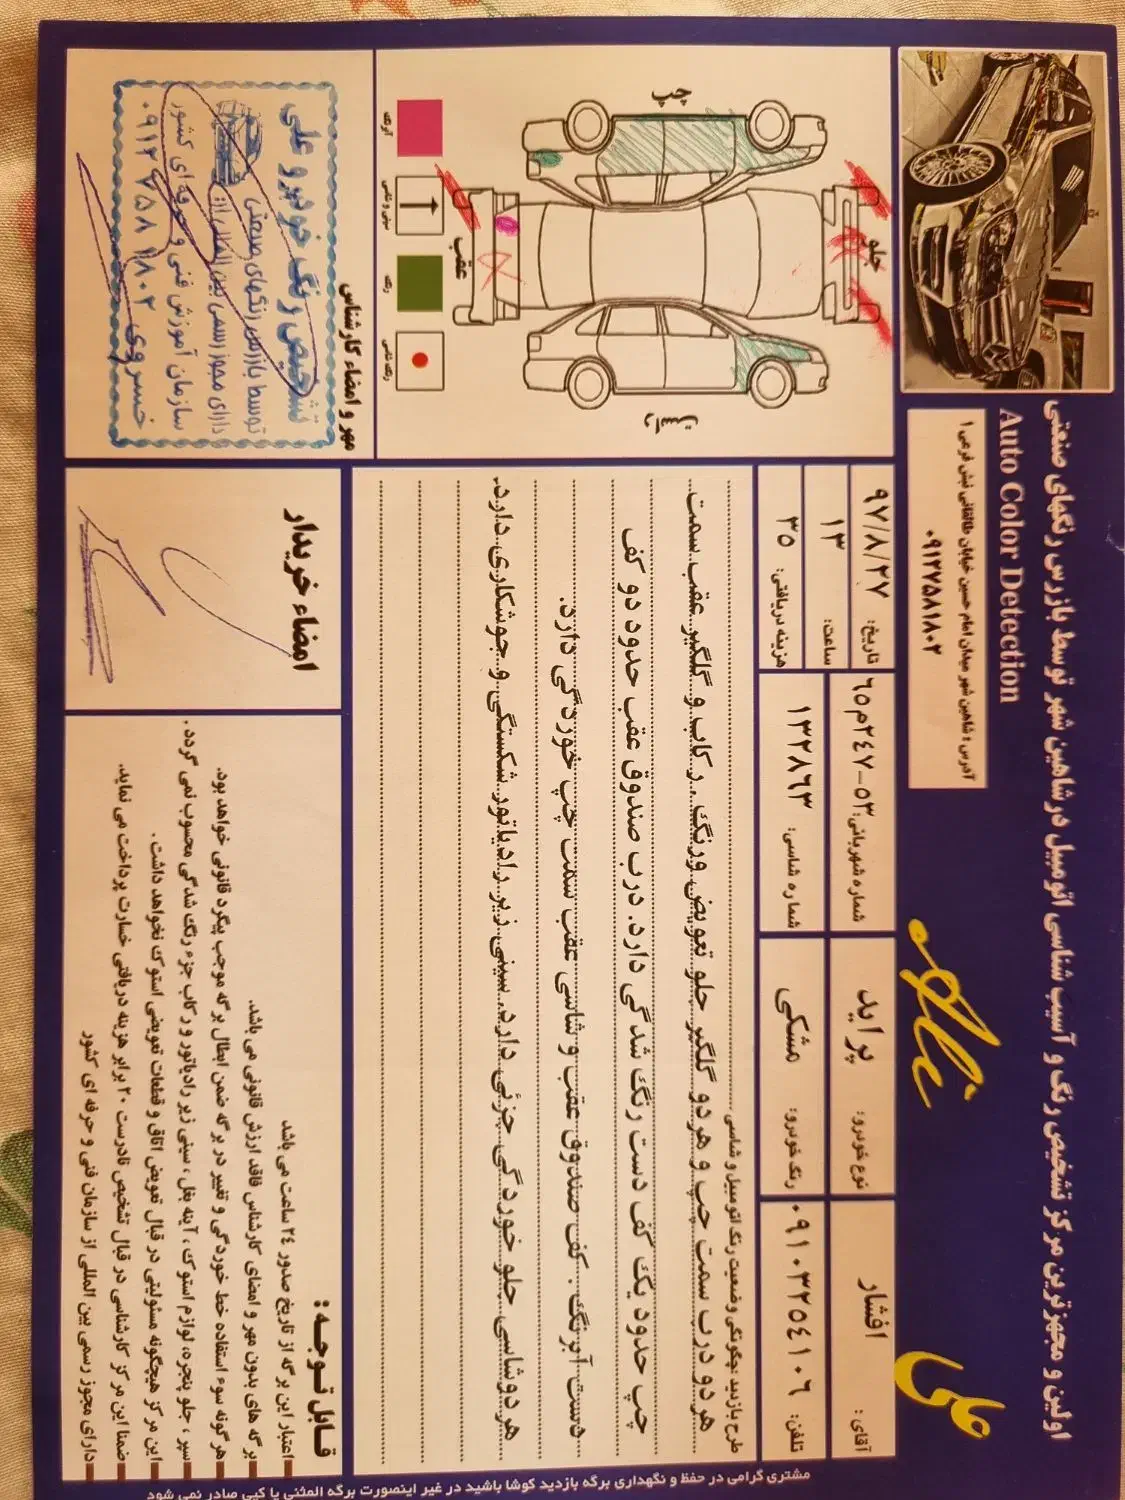 اولین و مجهزترین مرکز تشخیص رنگ و آسیب شناسی اتومبیل در شاهین شهر توسط بازرس رنگهای صنعتی
Auto Color Detection
علی
آدرس : شاهین شهر میدان امام حسین خیابان طالقانی نبش فرعی ۱
۰۹۱۲۷۵۸۱۸۰۲
آقای : افشار
نوع خودرو: پراید
شماره شهربانی: ۵۳-۲۴۷م۶۵
تاریخ: ۹۷/۸/۲۷
ساعت: ۱۳
تلفن: ۰۹۱۰۳۲۵۴۱۰۶
رنگ خودرو: مشکی
شماره شاسی: ۱۳۲۸۶۳
هزینه دریافتی: ۳۵
طرح بازدید :چگونگی وضعیت رنگ اتومبیل و شاسی
هر دو درب سمت چپ و هر دو گلگیر جلو تعویض ورنگ . رکاب و گلگیر عقب سمت
چپ حدود یک کف دست رنگ شدگی دارد. درب صندوق عقب حدود دو کف
دست آبرنگ . کف صندوق عقب و شاسی عقب سمت چپ خوردگی دارد.
هر دوشاسی جلو خوردگی جزئی دارد. سینی زیر رادیاتور شکستگی و جوشکاری دارد.
چپ
جلو
عقب
راست
آبرنگ
سینی و شاسی
رنگ
رنگ شاسی
مهر و امضاء کارشناس
تشخیص رنگ خودرو علی
توسط بازرس رنگهای صنعتی
دارای مجوز رسمی بین المللی از:
سازمان آموزش فنی و حرفه ای کشور
خسروی ۰۹۱۲۷۵۸۱۸۰۲
امضاء خریدار
قابل توجه :
اعتبار این برگه از تاریخ صدور ۲۴ ساعت می باشد
برگه های بدون مهر و امضای کارشناس فاقد ارزش قانونی می باشد.
هر گونه سوء استفاده خط خوردگی و تغییر در برگه ضمن ابطال برگه موجب پیگرد قانونی خواهد بود.
سپر ، جلو پنجره، لوازم استوک ، آینه بغل ، سینی زیر رادیاتور و رکاب جزء رنگ شدگی محسوب نمی گردد.
این مرکز هیچگونه مسئولیتی در قبال تعویض اتاق و قطعات تعویضی استوک نخواهد داشت.
ضمنا این مرکز کارشناسی در قبال تشخیص نادرست ۲۰ برابر هزینه دریافتی خسارت پرداخت می نماید.
دارای مجوز رسمی بین المللی از سازمان فنی و حرفه ای کشور
مشتری گرامی در حفظ و نگهداری برگه بازدید کوشا باشید در غیر اینصورت برگه المثنی یا کپی صادر نمی شود